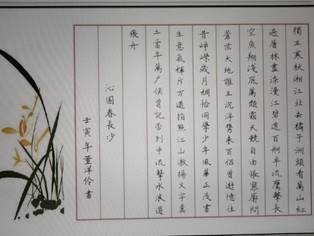 獨立寒秋湘江北去橘子洲頭看萬山紅
遍層林盡染漫江碧透百舸爭流鷹擊長
空魚翔淺底萬類霜天競自由悵寥廓問
蒼茫大地誰主沉浮攜來百侶曾遊憶往
昔崢嶸歲月稠恰同學少年風華正茂書
生意氣揮斥方遒指點江山激揚文字糞
土當年萬戶侯曾記否到中流擊水浪遏
飛舟
沁園春長沙
壬寅年董洋伶書